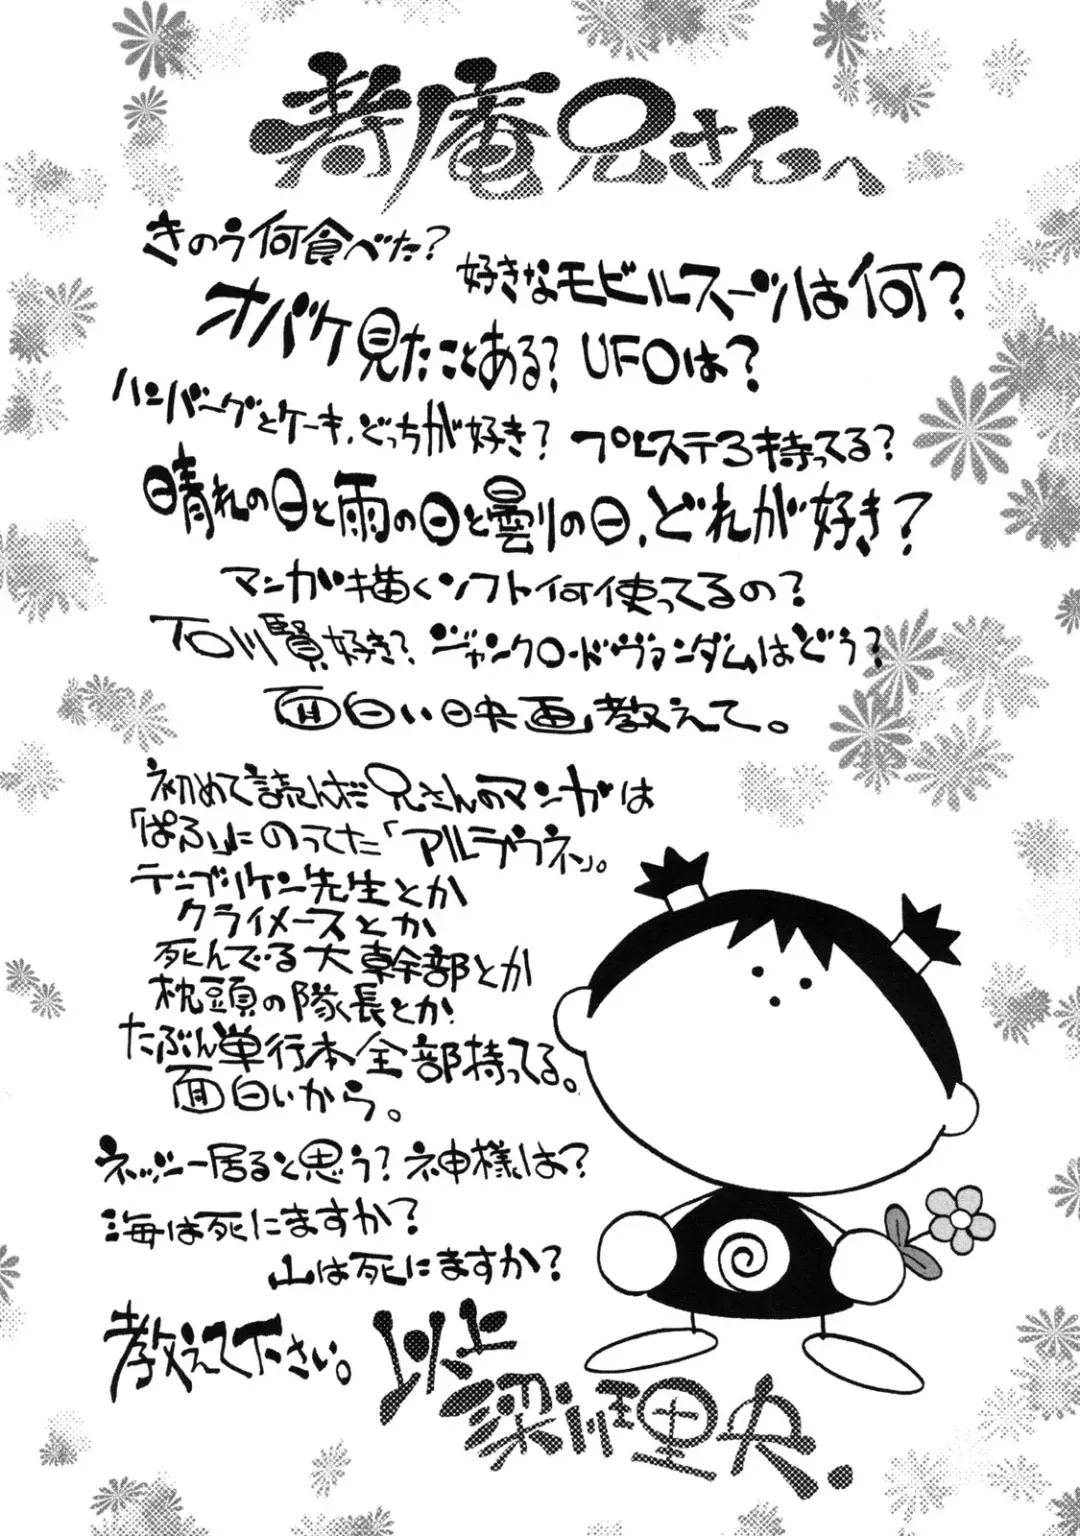 寿庵兄さんへ
きのう何食べた?
好きなモビルスーツは何?
オバケ見たことある? UFOは?
ハンバーグとケーキ、どっちが好き? プレステ3持ってる?
晴れの日と雨の日と曇りの日、どれが好き?
マンガ描くソフト何使ってるの?
石川賢好き? ジャンクロード・ヴァンダムはどう?
面白い映画教えて。
初めて読んだ兄さんのマンガは
「ぱふ」にのってた「アルラウネ」。
テンプリケン先生とか
クライメースとか
死んでる大幹部とか
枕頭の隊長とか
たぶん単行本全部持ってる。
面白いから。
ネッシー居ると思う? 神様は?
海は死にますか?
山は死にますか?
教えて下さい。
以上
梁川理央.